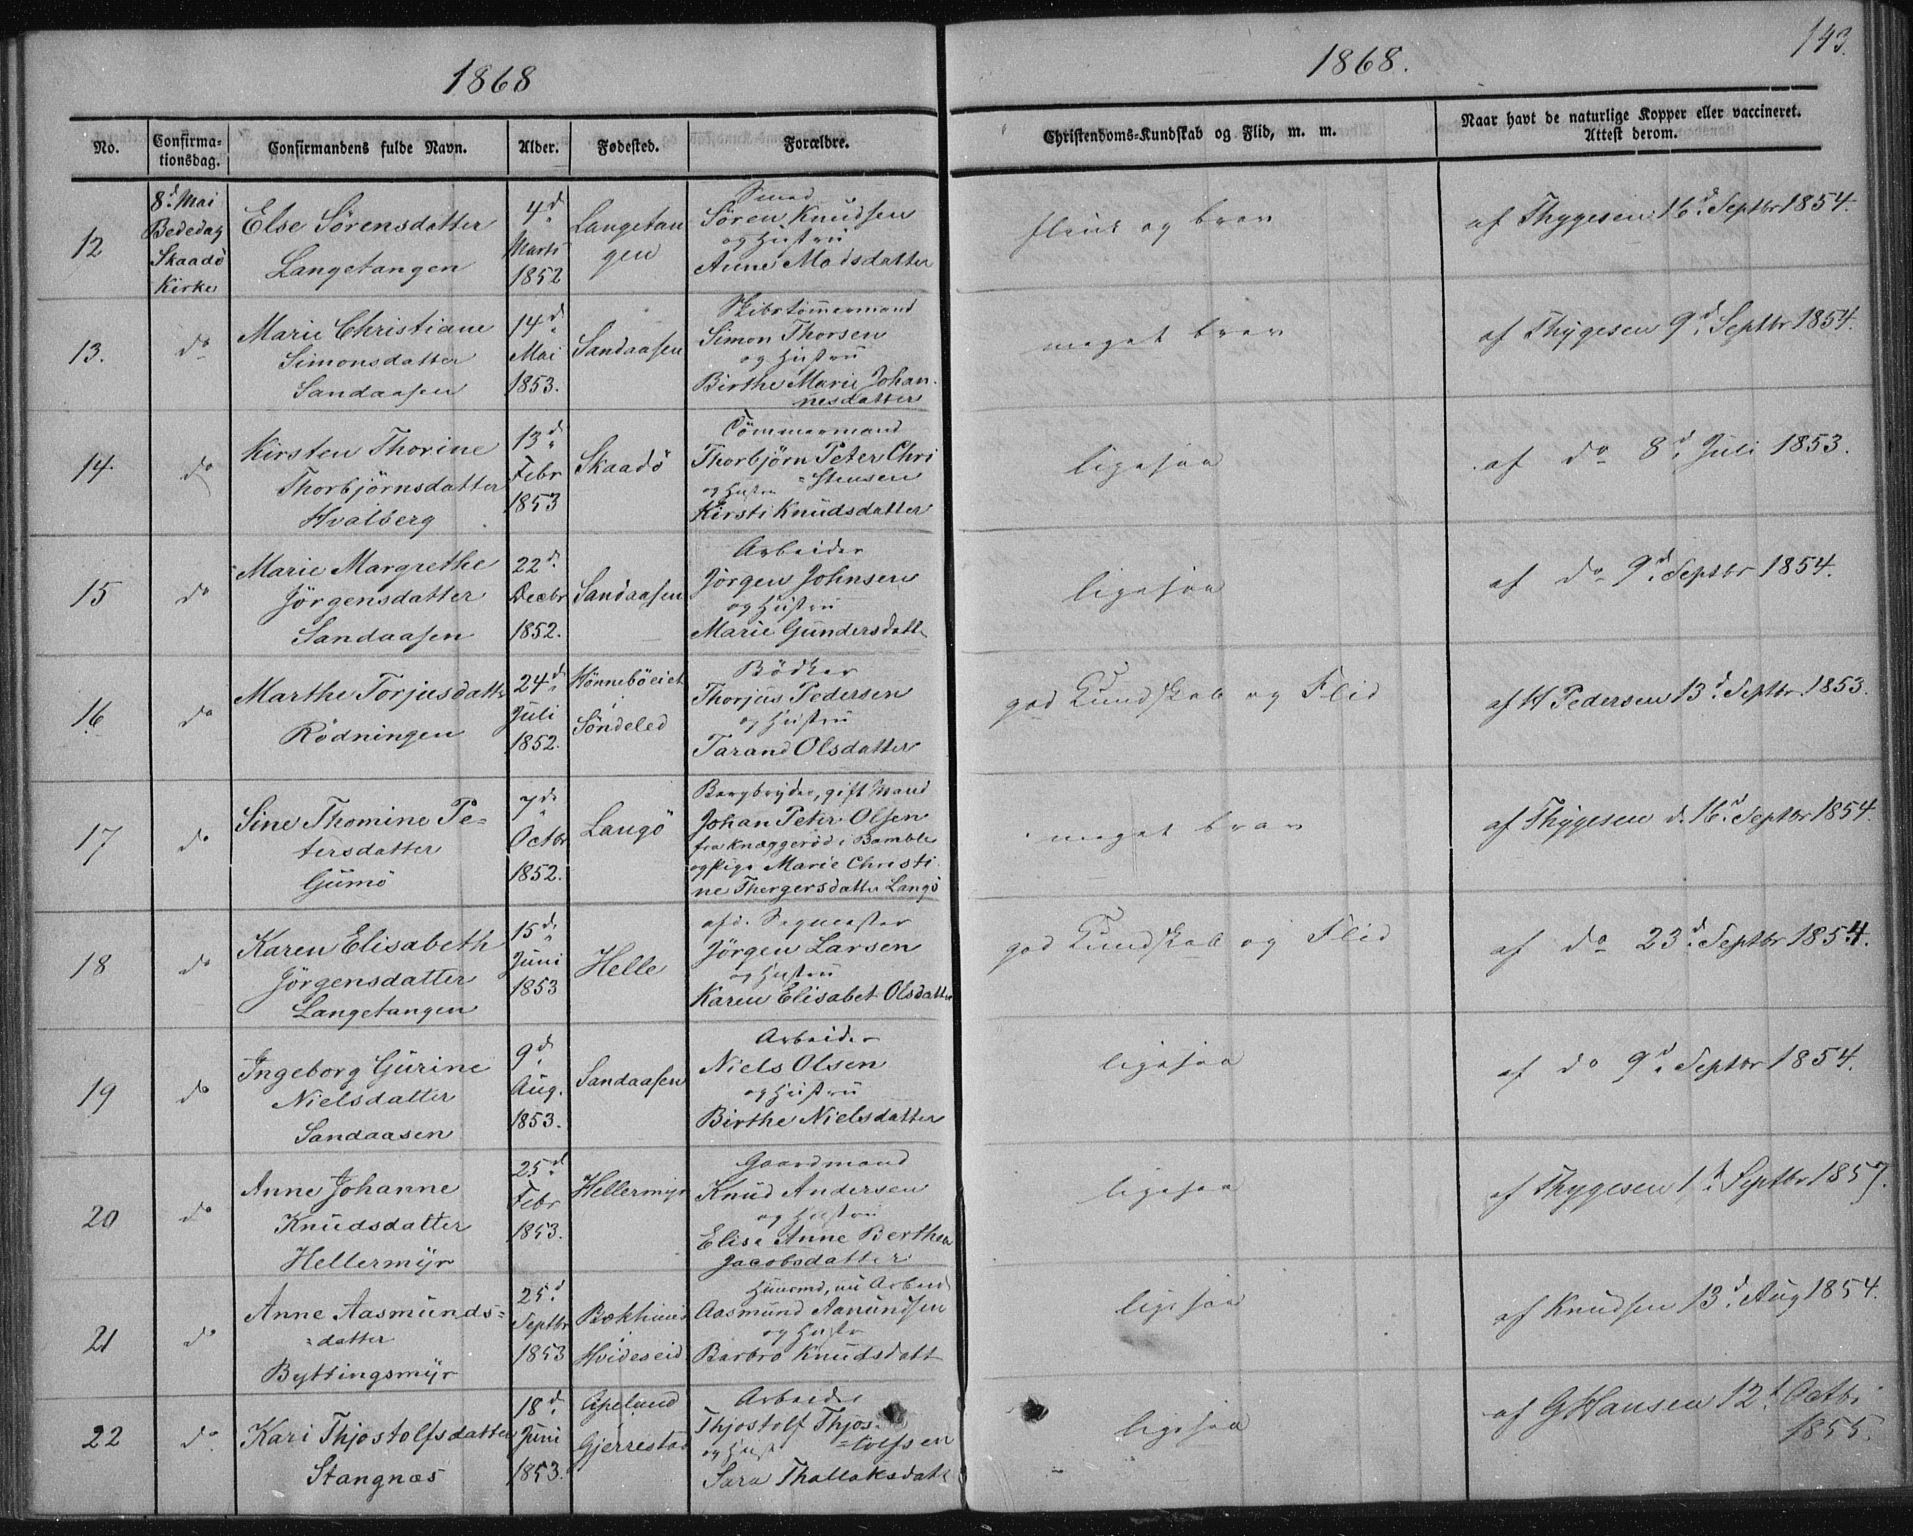 1868
1868.
143.
No.
Confirma-
tionsdag.
Confirmandens fulde Navn.
Alder.
Fødested.
Forældre.
Christendoms-Kundskab og Flid, m. m.
Naar havt de naturlige Kopper eller vaccineret.
Attest derom.
12
8d. Mai
Bededag
Skaadö
Kirke
Else Sörensdatter
Langetangen
4d.
Marts
1852
Langetan
gen
Smed
Sören Knudsen
og Hustru
Anne Madsdatter
flink og brav
af Thygesen 16d. Septbr 1854.
13.
do
Marie Christiane
Simonsdatter
Sandaasen
14d.
Mai
1853.
Sandaasen
Skibstömmermand
Simon Thorsen
og Hustru
Birthe Marie Johan-
nesdatter
meget brav
af Thygesen 9d. Septbr 1854.
14.
do
Kirsten Thorine
Thorbjörnsdatter
Hvalberg
13d.
Febr
1853
Skaadö
Tömmermand
Thorbjörn Peter Chri
=stensen
og Hustru
Kirsti Knudsdatter
ligesaa
af do 8d. Juli 1853.
15
do
Marie Margrethe
Jörgensdatter
Sandaasen
22d.
Decbr
1852.
Sandaasen
Arbeider
Jörgen Johnsen
og Hustru
Marie Gundersdatt
ligesaa
af do 9d. Septbr 1854.
16.
do
Marthe Torjusdatter
Rödningen
24d.
Juli
1852.
Hönneböeiet
i
Söndeled
Bödker
Thorjus Pedersen
og Hustru
Tarand Olsdatter
god Kundskab og Flid
af H Pedersen 13d. Septbr. 1853.
17
do
Sine Thomine Pe-
tersdatter
Gumö
7d.
Octbr
1852.
Langö
Bergbryder, gift Mand
Johan Peter Olsen
fra Knæggeröd i Bamble
og Pige Marie Christi
ne Thergersdatter Langö
meget brav
af Thygesen d. 16d. Septbr 1854.
18
do
Karen Elisabeth
Jörgensdatter
Langetangen
15d.
Juni
1853
Helle
afd. Sagmester
Jörgen Larsen
og Hustru
Karen Elisabet Olsdatter
god Kundskab og Flid
af do 23d. Septbr 1854.
19
do
Ingeborg Gurine
Nielsdatter
Sandaasen
9d.
Aug.
1853.
Sandaasen
Arbeider
Niels Olsen
og Hustru
Birthe Nielsdatter
ligesaa
af do 9d. Septbr 1854.
20
do
Anne Johanne
Knudsdatter
Hellermyr
25d.
Febr
1853.
Hellermyr
Gaardmand
Knud Andersen
og Hustru
Elise Anne Berthea
Jacobsdatter
ligesaa
af Thygesen 1d. Septbr 1857.
21
do
Anne Aasmunds=
=datter
Byttingsmyr
25d.
Septbr
1853
Bækhuus
i
Hvideseid
Huusmd, nu Arbeid
Aasmund Aanundsen
og Hustr
Barbro Knudsdatt
ligesaa
af Knudsen 13d. Aug 1854.
22
do
Kari Thjostolfsdatter
Stangnæs
18d.
Juni
1853.
Apelund
Gjerrestad
Arbeider
Thjostolf Thjos-
=tolfsen
og Hust
Sara Thallaksdatt
ligesaa
af G Hansen 12t Octbr
1855.